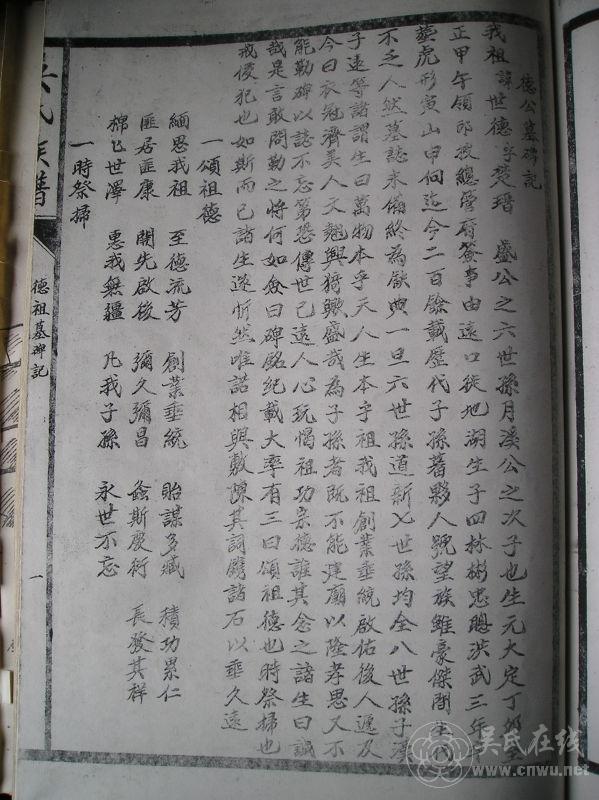 德公墓碑記
我祖諱世德字楚瑨 盛公之六世孫月溪公之次子也生元大定丁卯
正甲午領邱授總管府簽事由遠口徙地湖生子四林彬忠聰洪武三年
葬虎形寅山申向迄今二百餘載歷代子孫蕃夥人號望族雖豪傑間生代
不乏人然墓誌未備終為缺典一旦六世孫道新七世孫均全八世孫子漢
子遠等諸謂生曰萬物本乎天人生本乎祖我祖創業垂統啟佑後人逓及
今日衣冠濟美人文翹興猗歟盛哉為子孫者既不能建廟以隆孝思又不
能勒碑以誌不忘第恐傳世已遠人心玩愒祖功宗德誰其念之諸生曰誠
哉是言敢問勒之將何如僉曰碑銘紀載大率有三曰頌祖德也時祭掃也
戒侵犯也如斯而已諸生遂忻然唯諾相與敷陳其詞鐫諸石以垂久遠
一頌祖德
緬思我祖 至德流芳 創業垂統 貽謀多臧 積功累仁
匪居匪康 開先啟後 彌久彌昌 螽斯慶衍 長發其祥
棉乜世澤 惠我無疆 凡我子孫 永世不忘
一時祭掃
吳氏族譜
德祖墓碑記
一
吴氏在线
www.cnwu.net